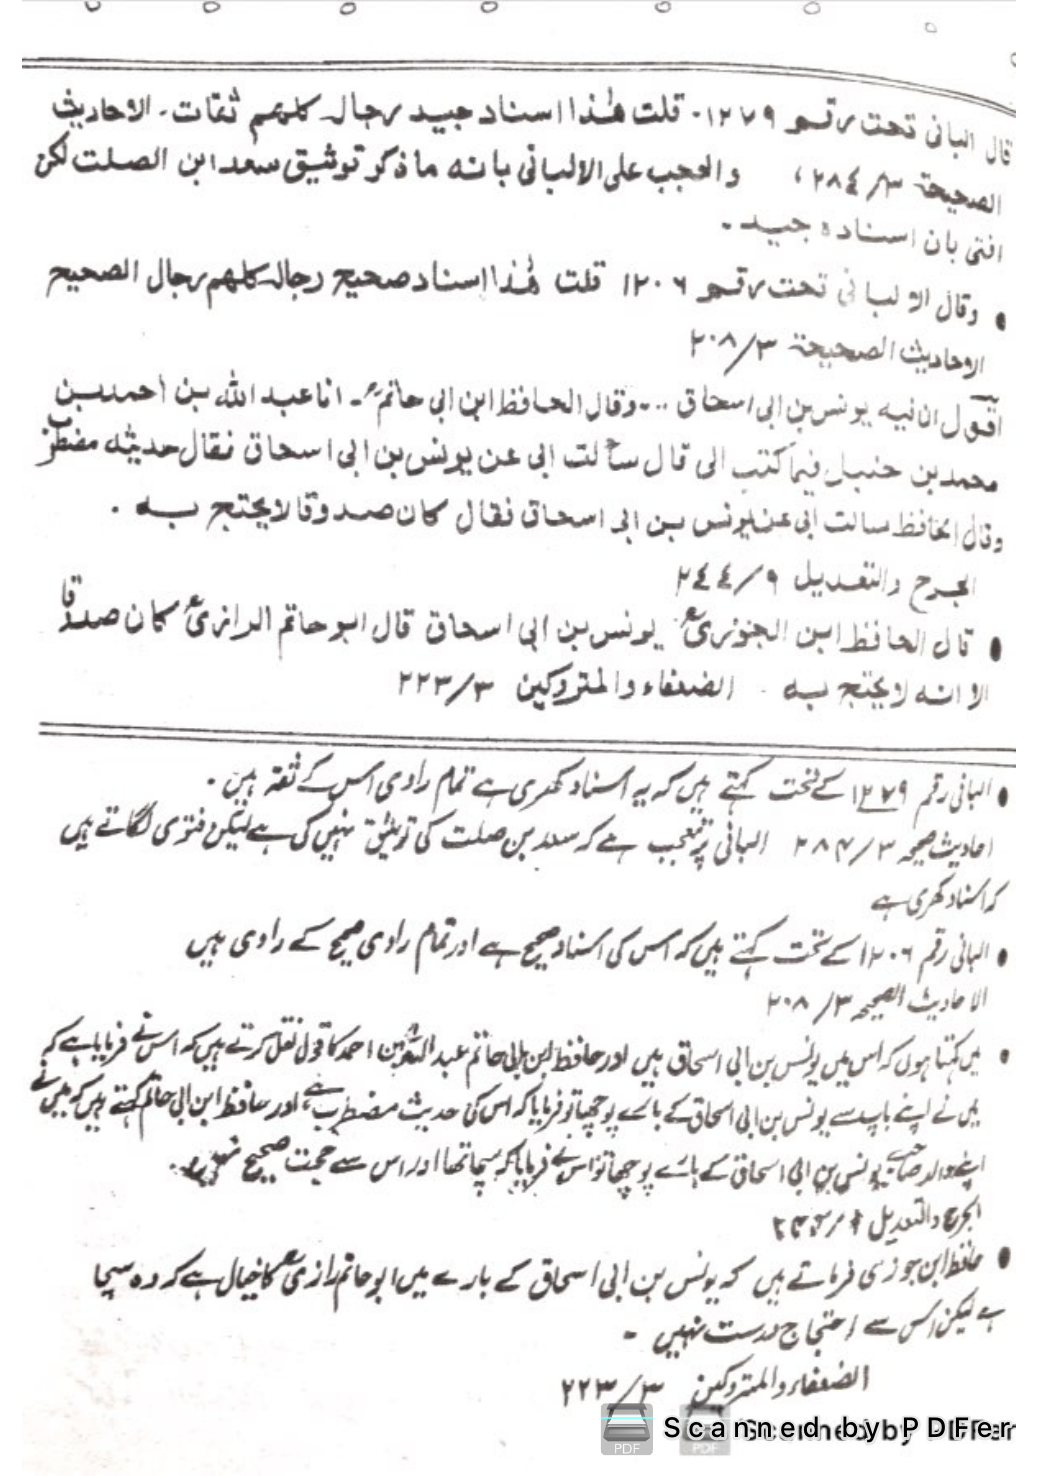 قال البانی تحت رقم ١٢٧٩۔ قلت ھٰذا اسناد جید رجالہ کلھم ثقات۔ الاحادیث
الصحیحۃ ٣/٢٨٤، والعجب علی الالبانی بانہ ما ذکر توثیق سعد ابن الصلت لکن
افتی بان اسنادہ جید۔
• وقال الالبانی تحت رقم ١٢٠٦ قلت ھٰذا اسناد صحیح رجالہ کلھم رجال الصحیح
الاحادیث الصحیحۃ ٣/٢٠٨
اقول ان فیہ یونس بن ابی اسحاق ... وقال الحافظ ابن ابی حاتمؒ۔ انا عبد اللہ بن احمد بن
محمد بن حنبل فیما کتب الی قال سألت ابی عن یونس بن ابی اسحاق فقال حدیثہ مضطرب
وقال الحافظ سالت ابی عن یونس بن ابی اسحاق فقال کان صدوقا لا یحتج بہ ۔
الجرح والتعدیل ٩/٢٤٤
• قال الحافظ ابن الجوزیؒ یونس بن ابی اسحاق قال ابو حاتم الرازیؒ کان صدوقا
الا انہ لا یحتج بہ ۔ الضعفاء والمتروکین ٣/٢٢٣
• البانی رقم ١٢٧٩ کے تحت کہتے ہیں کہ یہ اسناد کھری ہے تمام راوی اس کے ثقہ ہیں ۔
احادیث صحیحہ ٣/٢٨۴ البانی پر تعجب ہے کہ سعد بن صلت کی توثیق نہیں کی ہے لیکن فتوی لگاتے ہیں
کہ اسناد کھری ہے
• البانی رقم ١٢٠٦ کے تحت کہتے ہیں کہ اس کی اسناد صحیح ہے اور تمام راوی صحیح کے راوی ہیں
الاحادیث الصحیحہ ٣/٢٠٨
• میں کہتا ہوں کہ اس میں یونس بن ابی اسحاق ہیں اور حافظ ابن ابی حاتم عبد اللہ بن احمد کا قول نقل کرتے ہیں کہ اس نے فرمایا ہے کہ
میں نے اپنے باپ سے یونس بن ابی اسحاق کے بارے پوچھا تو فرمایا کہ اس کی حدیث مضطرب ہے، اور حافظ ابن ابی حاتم کہتے ہیں کہ میں نے
اپنے والد صاحب یونس بن ابی اسحاق کے بارے پوچھا تو اس نے فرمایا کہ سچا تھا اور اس سے حجت صحیح نہیں۔
الجرح والتعدیل
• حافظ ابن جوزی فرماتے ہیں کہ یونس بن ابی اسحاق کے بارے میں ابو حاتم رازیؒ کا خیال ہے کہ وہ سچا
ہے لیکن اس سے احتجاج درست نہیں ۔
الضعفاء والمتروکین ٣/٢٢٣
Scanned by PDFer